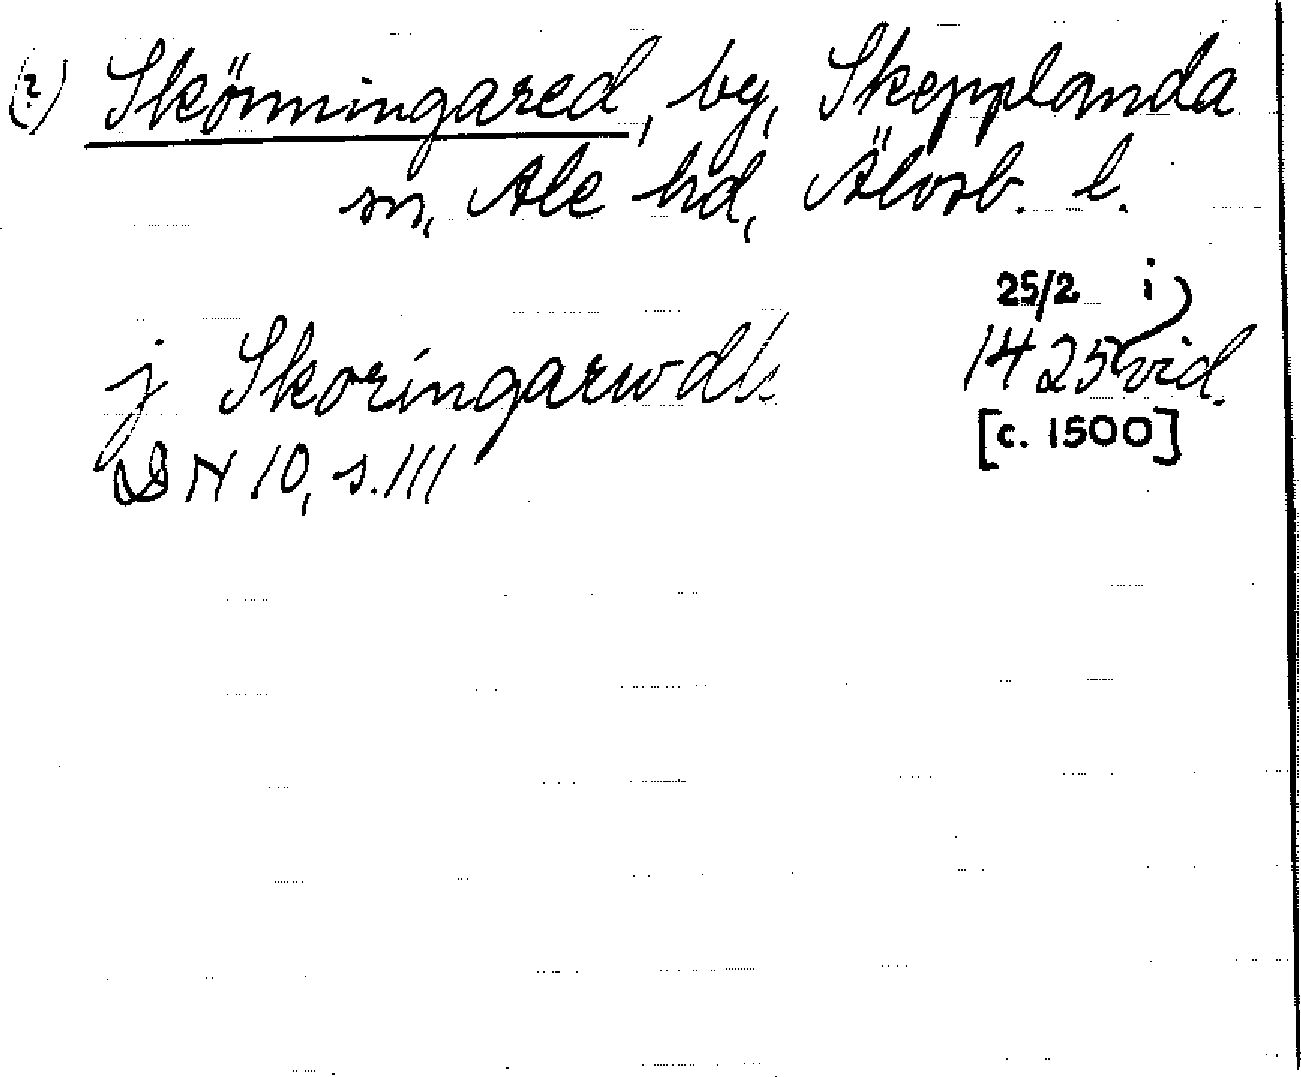 (?) Skönningared, by, Skepplanda
sn, Ale hd, Älvsb. l.
25/2 i
j Skoringarwdh 1425 vid.
[c. 1500]
DN 10, s. 111